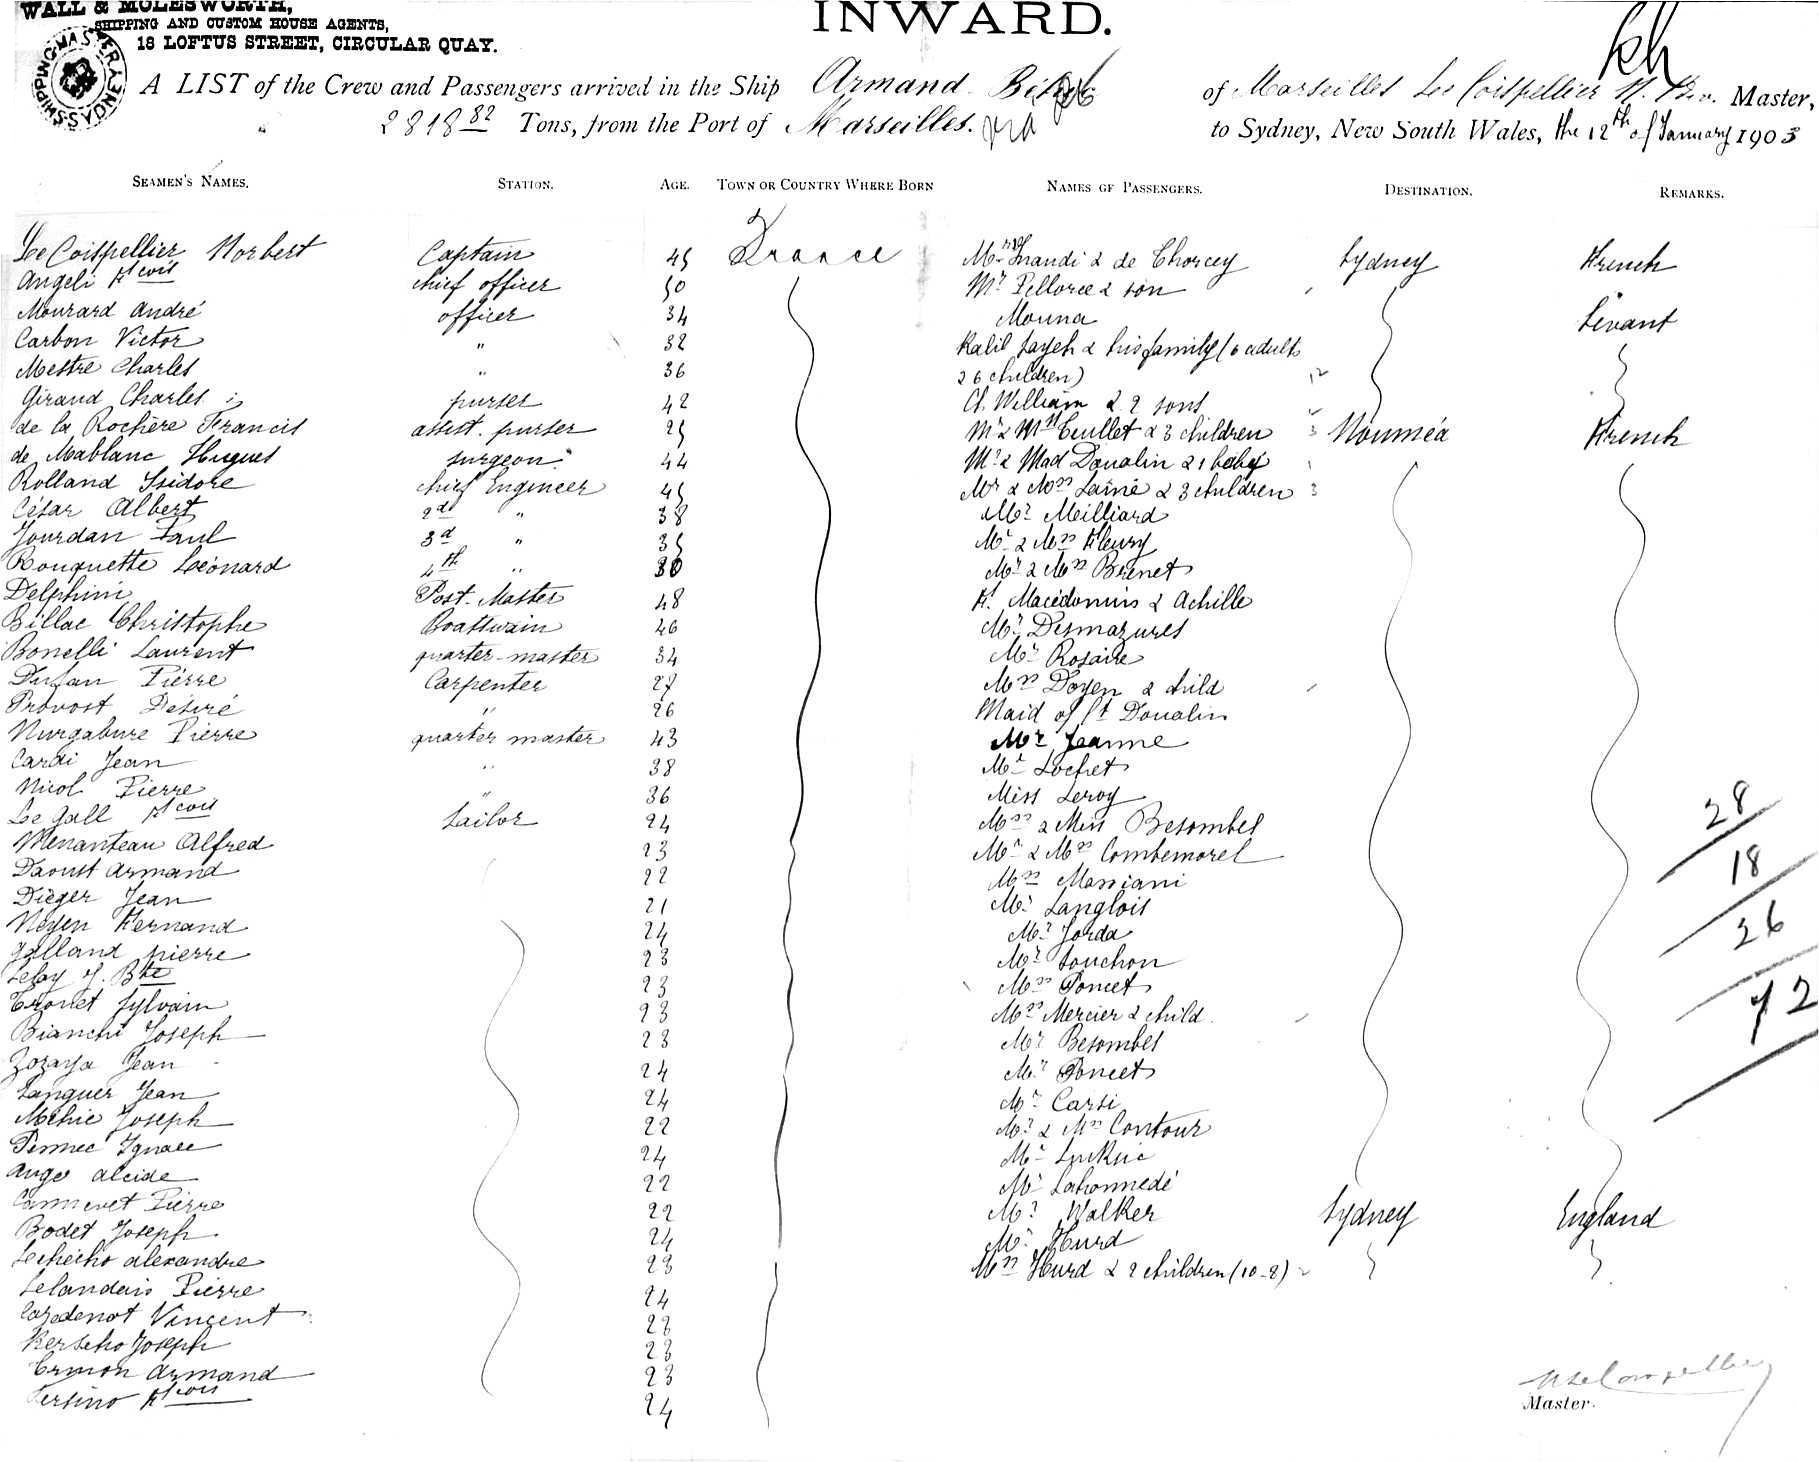 WALL & MOLESWORTH,
SHIPPING AND CUSTOM HOUSE AGENTS,
18 LOFTUS STREET, CIRCULAR QUAY.
INWARD.
SHIPPING MASTER SYDNEY
A LIST of the Crew and Passengers arrived in the Ship Armand of Marseilles Le Coispellier N. Master,
2818 82 Tons, from the Port of Marseilles. to Sydney, New South Wales, the 12th of January 1903
SEAMEN'S NAMES. STATION. AGE. TOWN OR COUNTRY WHERE BORN NAMES OF PASSENGERS. DESTINATION. REMARKS.
Le Coispellier Norbert Captain 45 France
Angeli Fcois chief officer 50
Mourard André officer 34
Carbon Victor " 32
Mestre Charles " 36
Giraud Charles purser 42
de la Rochère Francis assist. purser 25
de Mablanc Hugues surgeon 44
Rolland Isidore chief Engineer 45
César Albert 2d " 38
Jourdan Paul 3d " 35
Rouquette Léonard 4th " 30
Delphini Post-Master 48
Billac Christophe Boatswain 46
Bonelli Laurent quarter-master 34
Dufau Pierre Carpenter 27
Provost Désiré " 26
Nurgabure Pierre quarter master 43
Cardi Jean " 38
Nicol Pierre " 36
Le gall Fcois Sailor 24
Menanteau Alfred 23
Daoust Armand 22
Dieger Jean 21
Neyen Fernand 24
Galland pierre 23
Lefay J. Bte 23
Tronet Sylvain 23
Bianchi Joseph 23
Zozaya Jean 24
Languer Jean 24
Mehic Joseph 22
Pennec Ignace 24
Auge alcide 22
Cannevet Pierre 22
Bodet Joseph 24
Lehecho alexandre 23
Lelandais Pierre 24
Cazdenot Vincent 22
Kerseho Joseph 23
Ermon Armand 23
Persino Fcois 24
& de Chorcey Sydney French
Mr Pellorce & son
Mouna Levant
Kalil Sayeh & his family (6 adults
& 6 children)
Ch. William & 2 sons
Mr & Mrs Teullet & 3 children 3 Nouméa French
Mr & Mad Doualin & 1 baby
Mr & Mrs Lainé & 3 children 3
Mr Meilliard
Mr & Mrs Fleury
Mr & Mrs Brenet
F. Macédonius & Achille
Mr Desmazures
Mr Rosaire
Mrs Doyen & child
Maid of Ct Doualin
Mr Jeanne
Mr Lochet
Miss Leroy
Mrs & Miss Besombes
Mr & Mrs Combemorel
Mrs Massiani
Mr Langlois
Mr Jorda
Mr Souchon
Mrs Poncet
Mrs Mercier & child.
Mr Besombes
Mr Poncet
Mr Carsi
Mr & Mrs Contour
Mr
Mr Labonnedé
Mr Walker Sydney England
Mr Hurd
Mrs Hurd & 2 children (10-8)
28
18
26
72
Master.